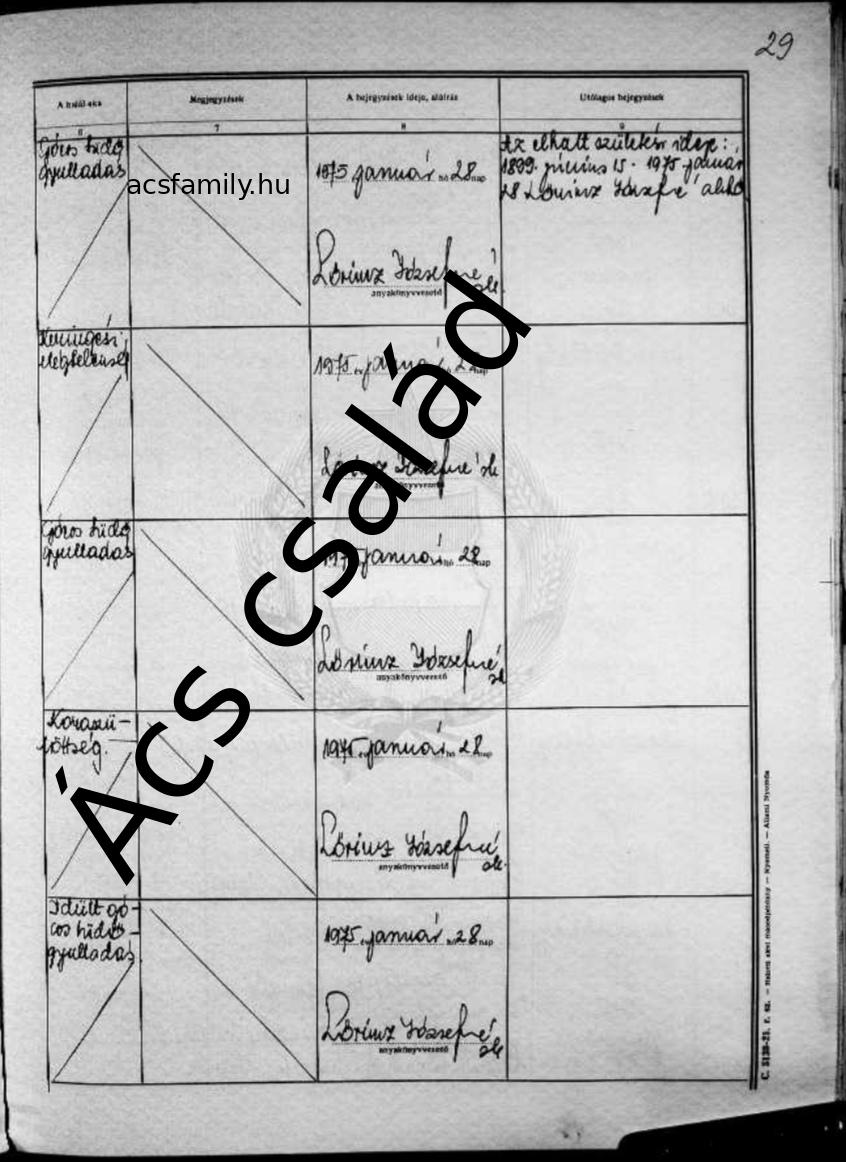 29
A halál oka
Megjegyzések
A bejegyzések ideje, aláírás
Utólagos bejegyzések
6
7
8
9
Gócos tüdő
gyulladás
1975 január hó 28 nap
Lőrincz Józsefné
anyakönyvvezető
Az elhalt születési ideje:
1899. június 15. 1975 január
28 Lőrincz Józsefné
acsfamily.hu
Keringési
elégtelenség
1975 év január hó 28 nap
Lőrincz Józsefné
anyakönyvvezető
Gócos tüdő
gyulladás
1975 január hó 28 nap
Lőrincz Józsefné
anyakönyvvezető
Ács család
Koraszü-
löttség.
1975 év január hó 28 nap
Lőrincz Józsefné
anyakönyvvezető
Idült gó-
cos tüdő-
gyulladás
1975 év január hó 28 nap
Lőrincz Józsefné
anyakönyvvezető
C. 3138-21. r. sz. — Nyomda